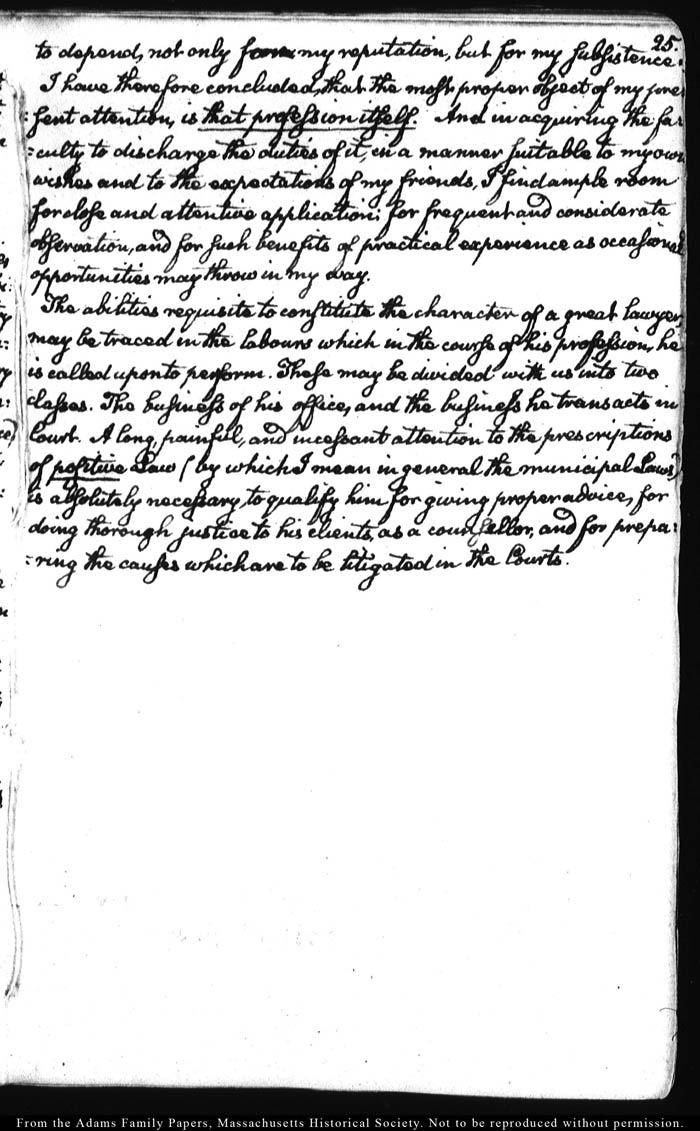 25.
to depend, not only for my reputation, but for my subsistence.
I have therefore concluded, that the most proper object of my pre
:sent attention, is that profession itself. And in acquiring the fa:
:culty to discharge the duties of it, in a manner suitable to my own
wishes and to the expectations of my friends, I find ample room
for close and attentive application; for frequent and considerate
observation, and for such benefits of practical experience as occasional
opportunities may throw in my way.
The abilities requisite to constitute the character of a great lawyer,
may be traced in the labours which in the course of his profession, he
is called upon to perform. These may be divided with us into two
classes. The business of his office, and the business he transacts in
Court. A long, painful, and incessant attention to the prescriptions
of positive Law (by which I mean in general the municipal Laws)
is absolutely necessary to qualify him for giving proper advice, for
doing thorough justice to his clients, as a counsellor, and for prepa:
:ring the causes which are to be litigated in the Courts.
From the Adams Family Papers, Massachusetts Historical Society. Not to be reproduced without permission.